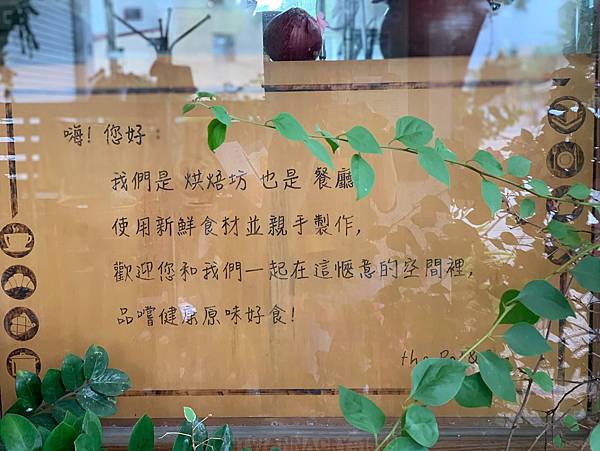 嗨! 您好:
我們是 烘焙坊 也是 餐廳
使用新鮮食材並親手製作,
歡迎您和我們一起在這愜意的空間裡,
品嚐健康原味好食!
the